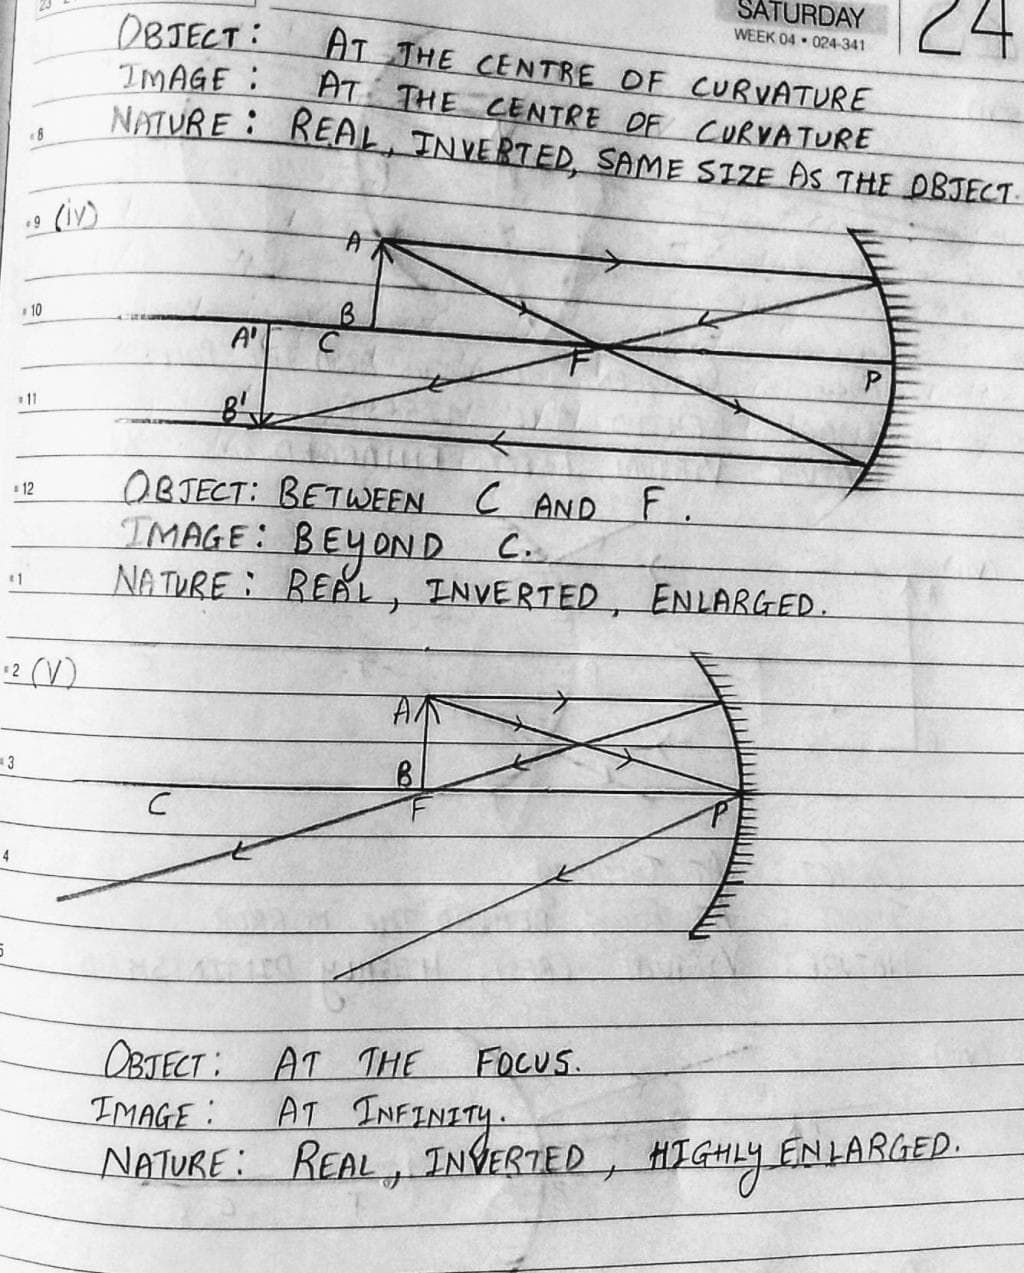 SATURDAY
WEEK 04 • 024-341
24
OBJECT: AT THE CENTRE OF CURVATURE
IMAGE: AT THE CENTRE OF CURVATURE
NATURE: REAL, INVERTED, SAME SIZE AS THE OBJECT.
8
9 (iv)
A
10
B
A' C
F
P
11
B'
12
OBJECT: BETWEEN C AND F.
IMAGE: BEYOND C.
1
NATURE: REAL, INVERTED, ENLARGED.
2 (V)
A
3
B
C F P
4
5
OBJECT: AT THE FOCUS.
IMAGE: AT INFINITY.
NATURE: REAL, INVERTED, HIGHLY ENLARGED.